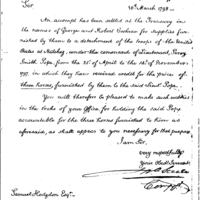 Sir
10th March 1798.
An account has been settled at the Treasury in
the names of George and Robert Cochran for supplies fur-
nished by them to a detachment of the troops of the United
States at Natchez, under the command of Lieutenant, Percy
Smith Pope, from the 25th of April to the 12th of November
1797, in which they have received credit for the price of
three horses, furnished by them to the said Lieut Pope.
You will therefore be pleased to make such entries in
the books of your Office for holding the said Pope
accountable for the three horses furnished to him as
aforesaid, as shall appear to you necessary for that purpose.
I am Sir,
very respectfully
Your Obed Servant
Samuel Hodgdon Esqr.